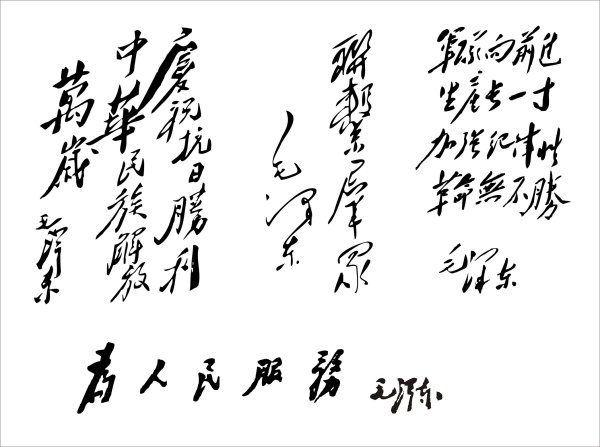 慶祝抗日勝利
中華民族解放
萬歲
毛澤東
聯繫羣眾
毛澤東
軍隊向前進
生產長一寸
加強紀律性
革命無不勝
毛澤東
為人民服務
毛澤東